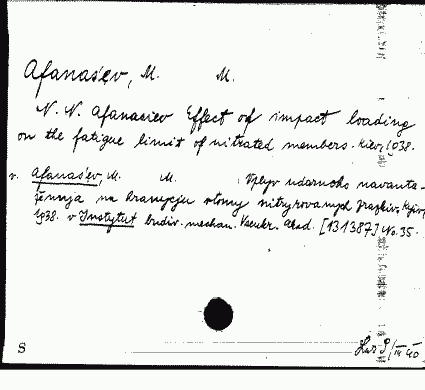 Afanas'ev, M. M.
N. N. Afanasiev Effect of impact loading
on the fatigue limit of nitrated members. Kiev, 1938.
v. Afanas'ev, M. M. Vplyv udarnoho navanta-
žennja na hranycju vtomy nitryrovanych zrazkiv. Kyjiv,
1938. v Instytut budiv. mechan. Vseukr. Akad. [131387] No. 35.
S
III 40